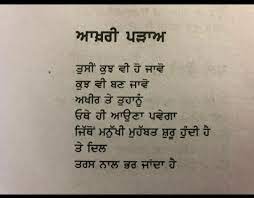 ਆਖ਼ਰੀ ਪੜਾਅ
ਤੁਸੀਂ ਕੁਝ ਵੀ ਹੋ ਜਾਵੋ
ਕੁਝ ਵੀ ਬਣ ਜਾਵੋ
ਅਖੀਰ ਤੇ ਤੁਹਾਨੂੰ
ਓਥੇ ਹੀ ਆਉਣਾ ਪਵੇਗਾ
ਜਿੱਥੋਂ ਮਨੁੱਖੀ ਮੁਹੱਬਤ ਸ਼ੁਰੂ ਹੁੰਦੀ ਹੈ
ਤੇ ਦਿਲ
ਤਰਸ ਨਾਲ ਭਰ ਜਾਂਦਾ ਹੈ